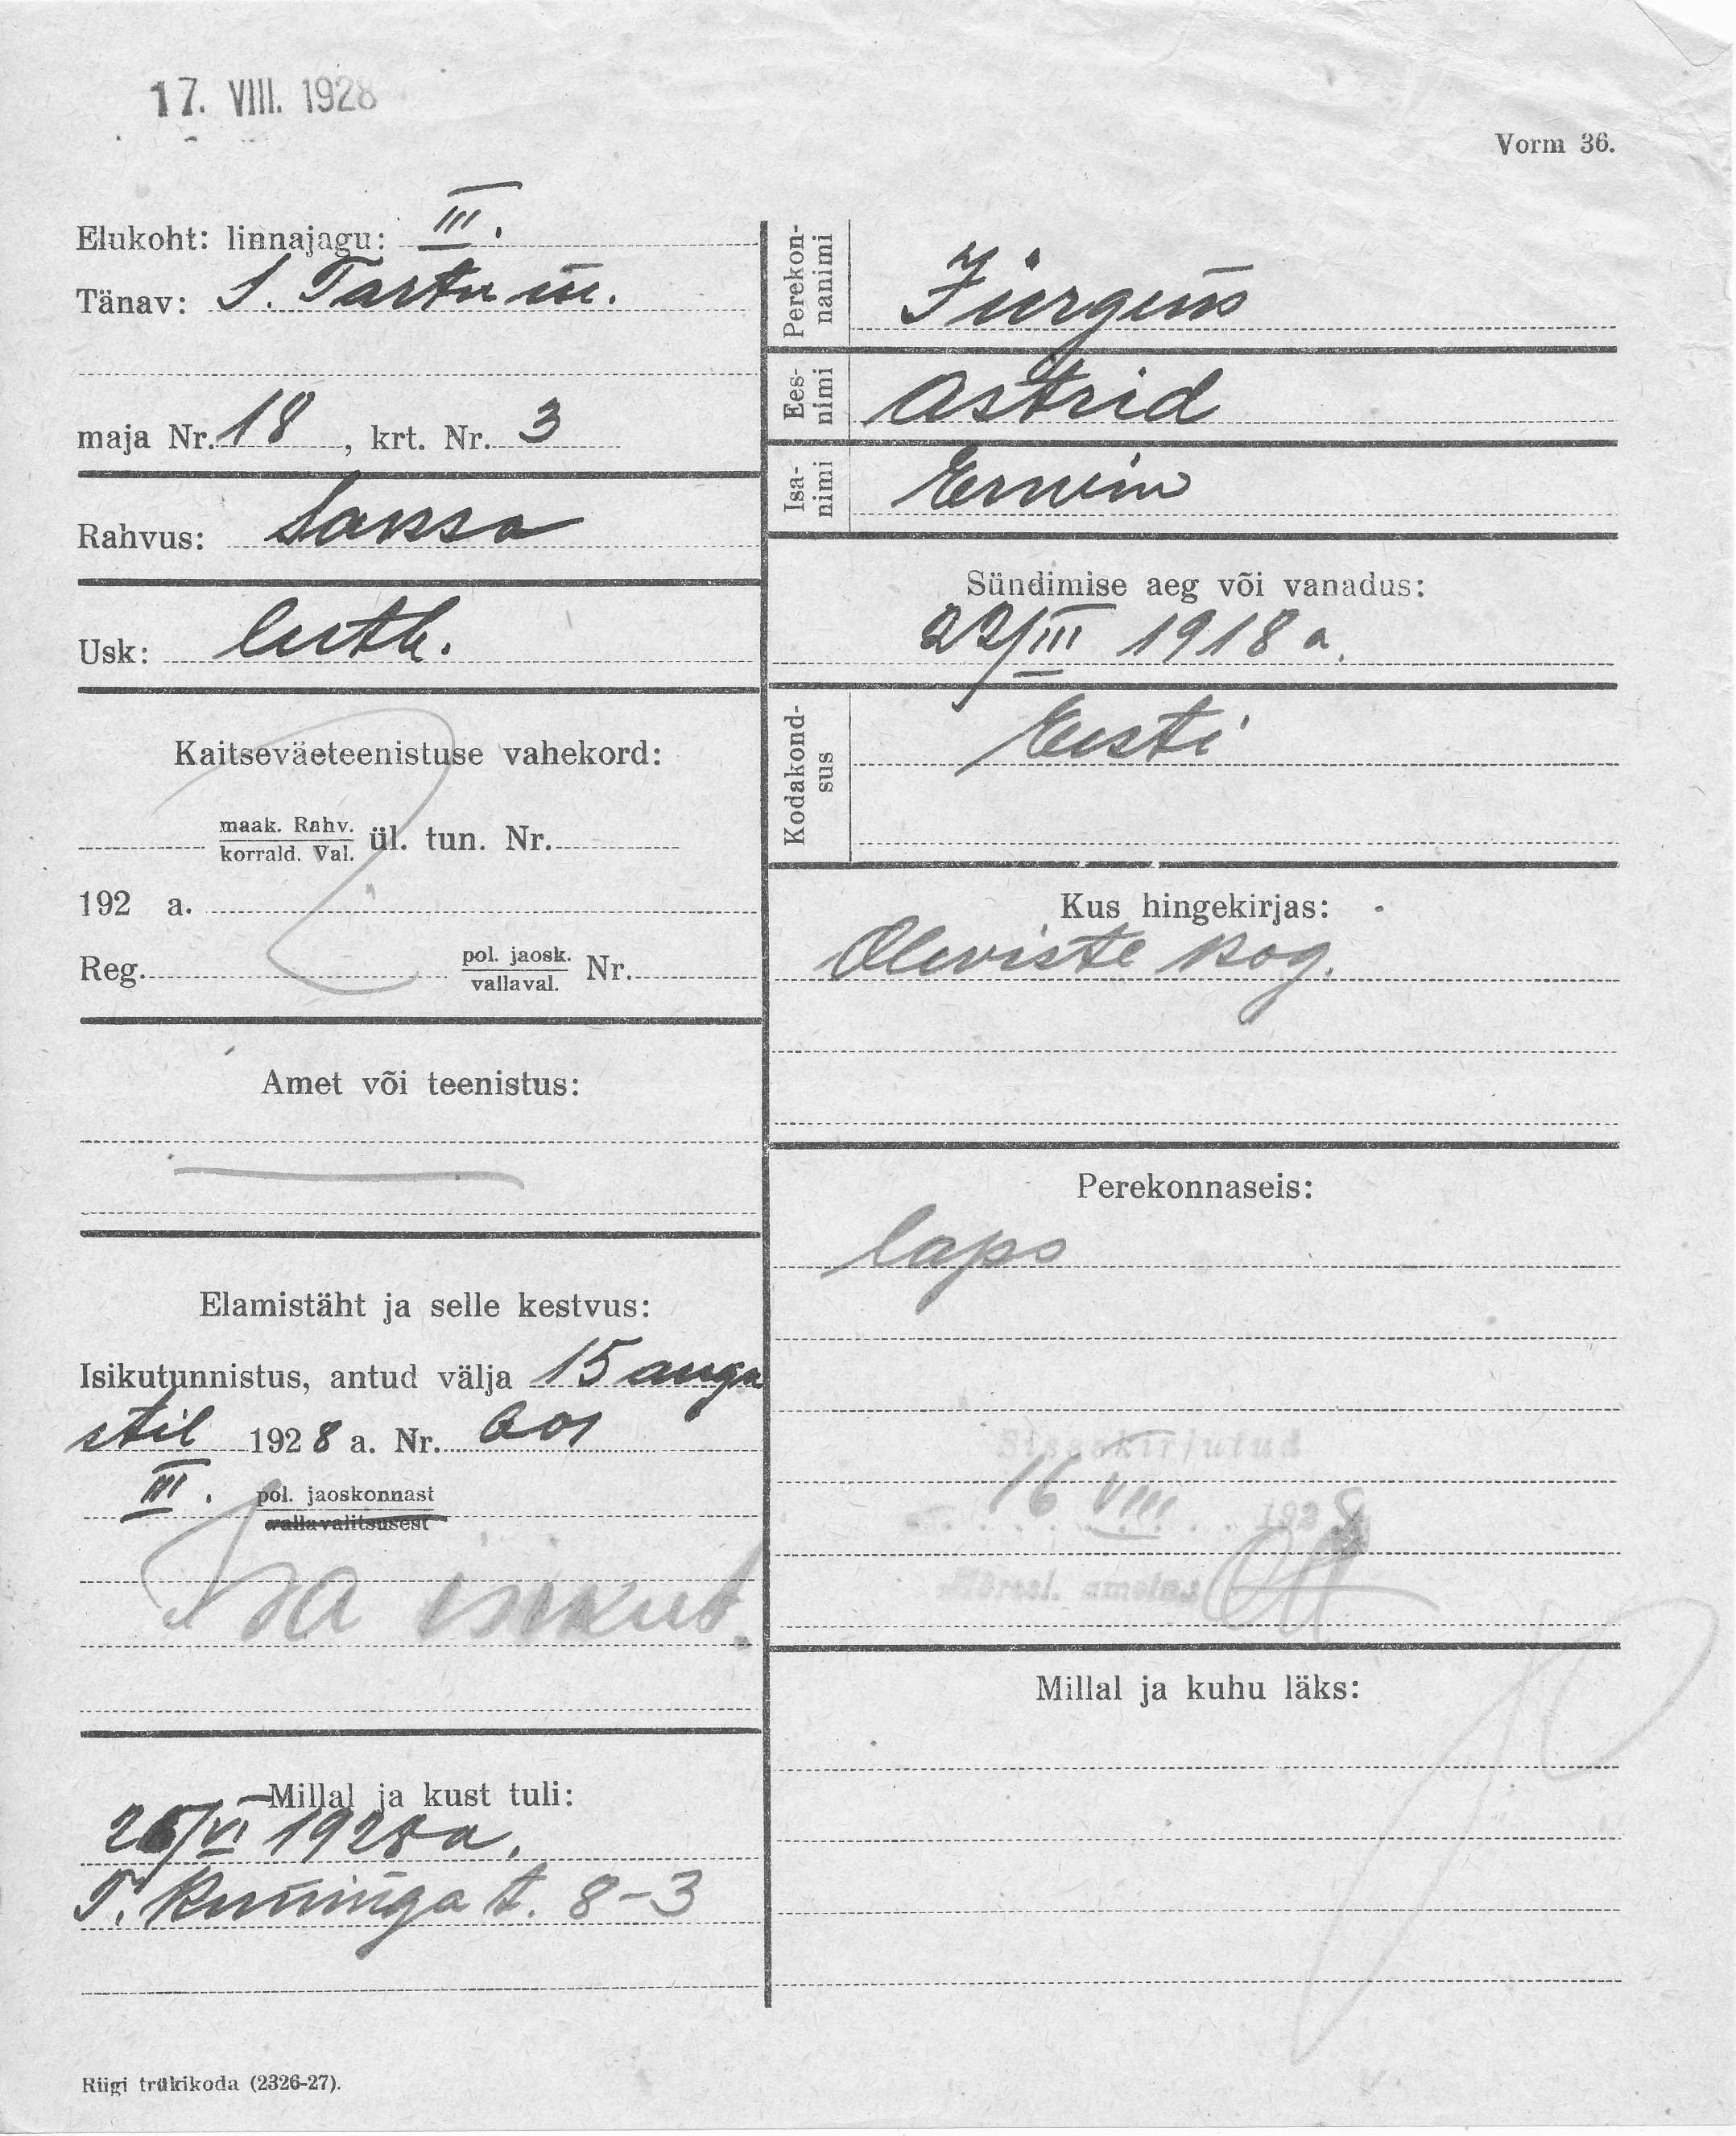 17. VIII. 1928
Vorm 36.
Elukoht: linnajagu: III.
Tänav: S. Tartu m.
maja Nr. 18, krt. Nr. 3
Rahvus: Saksa
Usk: luth.
Kaitseväeteenistuse vahekord:
maak. Rahv.
korrald. Val. ül. tun. Nr.
192 a.
Reg. pol. jaosk.
vallaval. Nr.
Amet või teenistus:
Elamistäht ja selle kestvus:
Isikutunnistus, antud välja 15 augu
stil 1928 a. Nr. 601
III. pol. jaoskonnast
vallavalitsusest
Isa isikut.
Millal ja kust tuli:
26/VI 1928 a.
T. Kuninga t. 8-3
Riigi trükikoda (2326-27).
Perekon-
nanimi Jürgens
Ees-
nimi Astrid
Isa-
nimi Erwin
Sündimise aeg või vanadus:
22/III 1918 a.
Kodakond-
sus Eesti
Kus hingekirjas:
Oleviste kog.
Perekonnaseis:
laps
Sissekirjutud
16 VIII 1928
Millal ja kuhu läks: